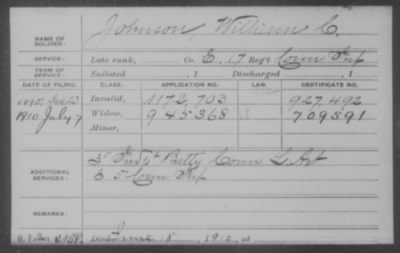 NAME OF SOLDIER: Johnson, William C.
SERVICE: Late rank, Co. E, 17 Reg't Conn Inf
TERM OF SERVICE: Enlisted , 1 Discharged , 1
DATE OF FILING. CLASS. APPLICATION NO. LAW. CERTIFICATE NO.
1895, Invalid, 1172,703 927,492
1910, July 7 Widow, 945368 709591
Minor,
ADDITIONAL SERVICES: Batty Conn L. Art
E 5 Conn Inf
REMARKS:
Died June 18, 1910, at